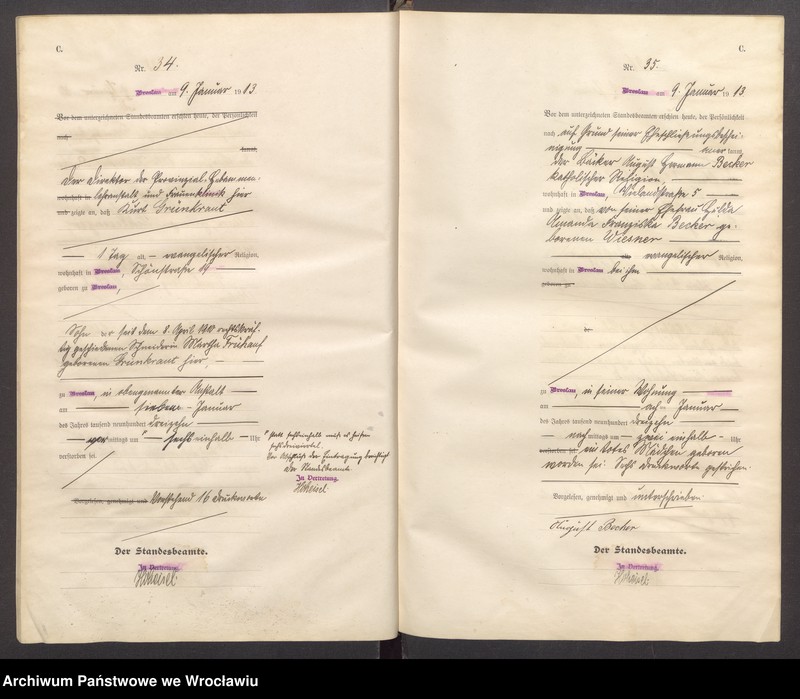 C.
Nr. 34.
Breslau am 9. Januar 1913
Vor dem unterzeichneten Standesbeamten erschien heute, der Persönlichkeit
nach
kannt,
Der Direktor der Provinzial-Hebammen-
wohnhaft in Lehranstalt und Frauenklinik hier
und zeigte an, daß Kurt Grünkraut
1 Tag alt, evangelischer Religion,
wohnhaft in Breslau, Schönstraße
geboren zu Breslau,
Sohn der seit dem 8. April rechtskräf-
tig geschiedenen Schneiderin Martha Frühauf
geborenen Grünkraut hier,
zu Breslau, in obengenannter Anstalt
am sieben Januar
des Jahres tausend neunhundert dreizehn
vormittags um sechs einhalb Uhr
verstorben sei.
Vorgelesen, genehmigt und Vorstehend 16 Druckworte
Der Standesbeamte.
In Vertretung.
statt sechseinhalb muß es heißen
Der Standesbeamte
In Vertretung.
C.
Nr. 35.
Breslau am 9. Januar 1913
Vor dem unterzeichneten Standesbeamten erschien heute, der Persönlichkeit
nach auf Grund seiner Eheschließungsbeschei-
nigung kannt,
der Bäcker August Hermann Becker
katholischer Religion,
wohnhaft in Breslau, 5
und zeigte an, daß von seiner Ehefrau Hilda
Amanda Franziska Becker ge-
borenen Wiesner
alt, evangelischer Religion,
wohnhaft in Breslau bei ihm
geboren zu
der
zu Breslau, in seiner Wohnung
am acht Januar
des Jahres tausend neunhundert dreizehn
nachmittags um zwei einhalb Uhr
verstorben sei. ein totes Mädchen geboren
worden sei. Sechs Druckworte gestrichen.
Vorgelesen, genehmigt und unterschrieben
August Becker
Der Standesbeamte.
In Vertretung.
Archiwum Państwowe we Wrocławiu